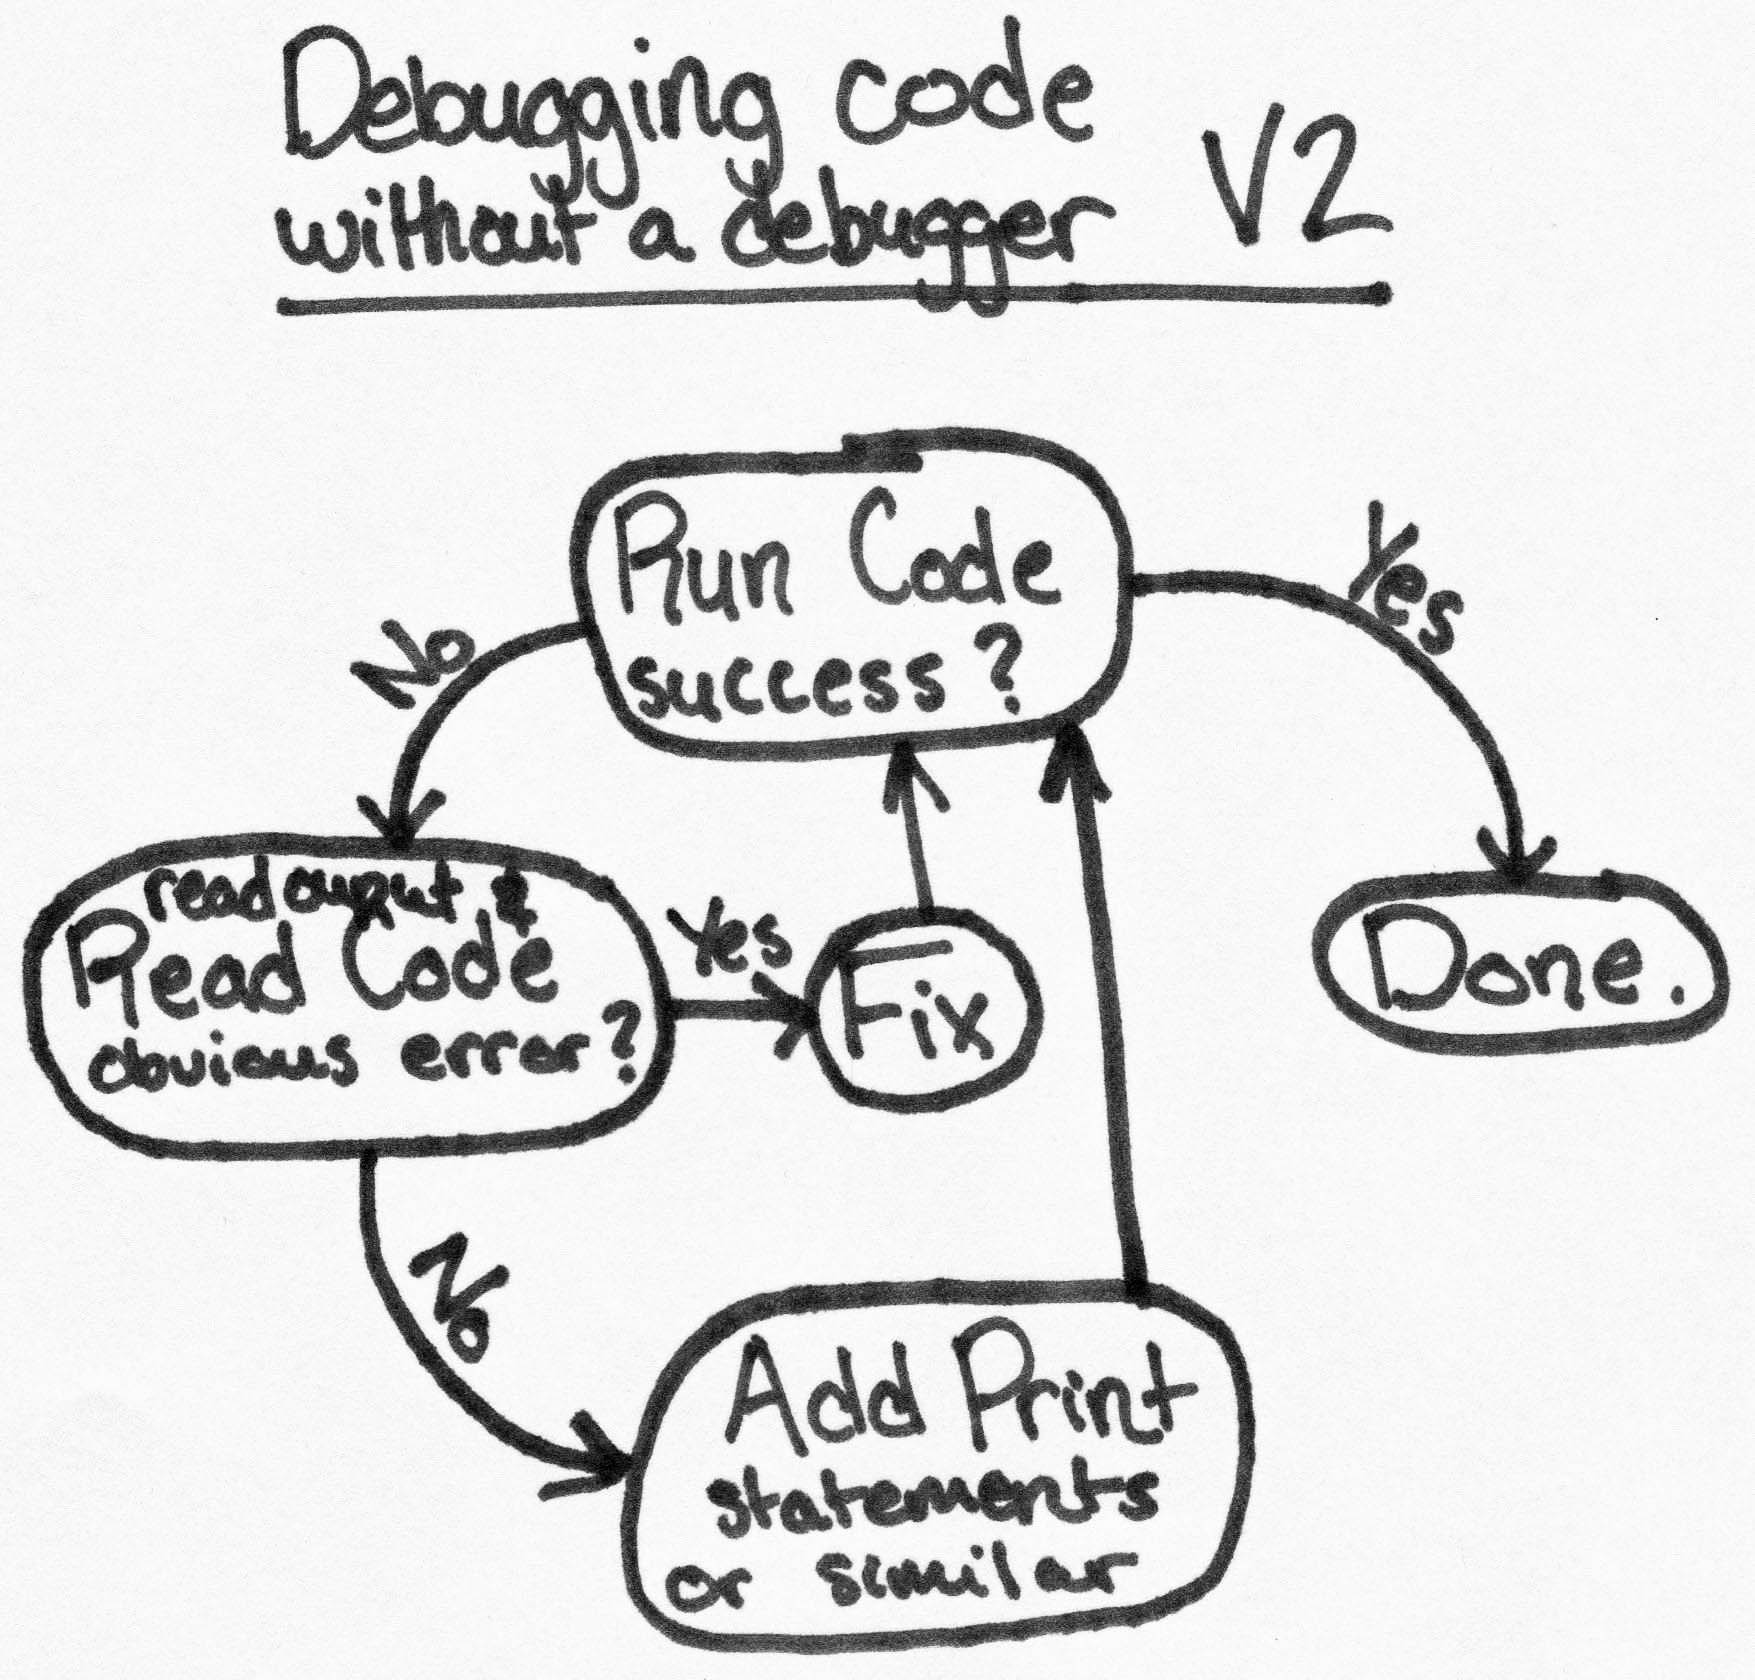 Debugging code
without a debugger V2
Run Code
success?
No
Yes
read ouput &
Read Code
obvious error?
Yes
Fix
Done.
No
Add Print
statements
or similar